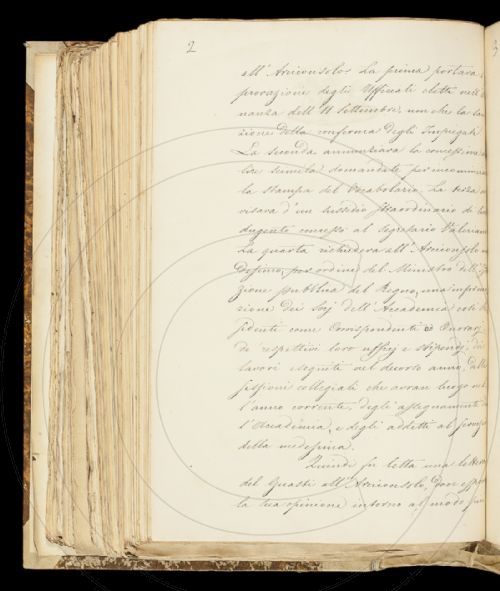 2
all' Arciconsolo. La prima portava
provazione degli Uffiziali eletti nell'
nanza dell' 11 Settembre, non che la
zione della conferma degli Impiegati
La seconda annunziava la concessione
lire seimila domandate per incomin
la stampa del Vocabolario. La terza
visava d'un sussidio straordinario di
dugento concesso al Segretario Valeriani
La quarta richiedeva all' Arciconsolo
desimo, per ordine del Ministro dell'
zione pubblica del Regno, una informa
zione dei Socj dell' Accademia così
sidenti come Corrispondenti ed Onorarj
de' respettivi loro uffizj e stipendj; dei
lavori eseguiti nel decorso anno; delle
sessioni collegiali che avran luogo nel
l'anno corrente; degli assegnamenti
l'Accademia, e degli addetti al servizio
della medesima.
Quindi fu letta una lettera
del Guasti all' Arciconsolo, dove
la sua opinione intorno al modo